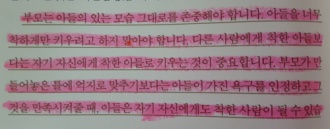 부모는 아들의 있는 모습 그대로를 존중해야 합니다. 아들을 너무
착하게만 키우려고 하지 말아야 합니다. 다른 사람에게 착한 아들보
다는 자기 자신에게 착한 아들로 키우는 것이 중요합니다. 부모가 만
들어놓은 틀에 억지로 맞추기보다는 아들이 가진 욕구를 인정하고 그
것을 만족시켜줄 때, 아들은 자기 자신에게도 착한 사람이 될 수 있습